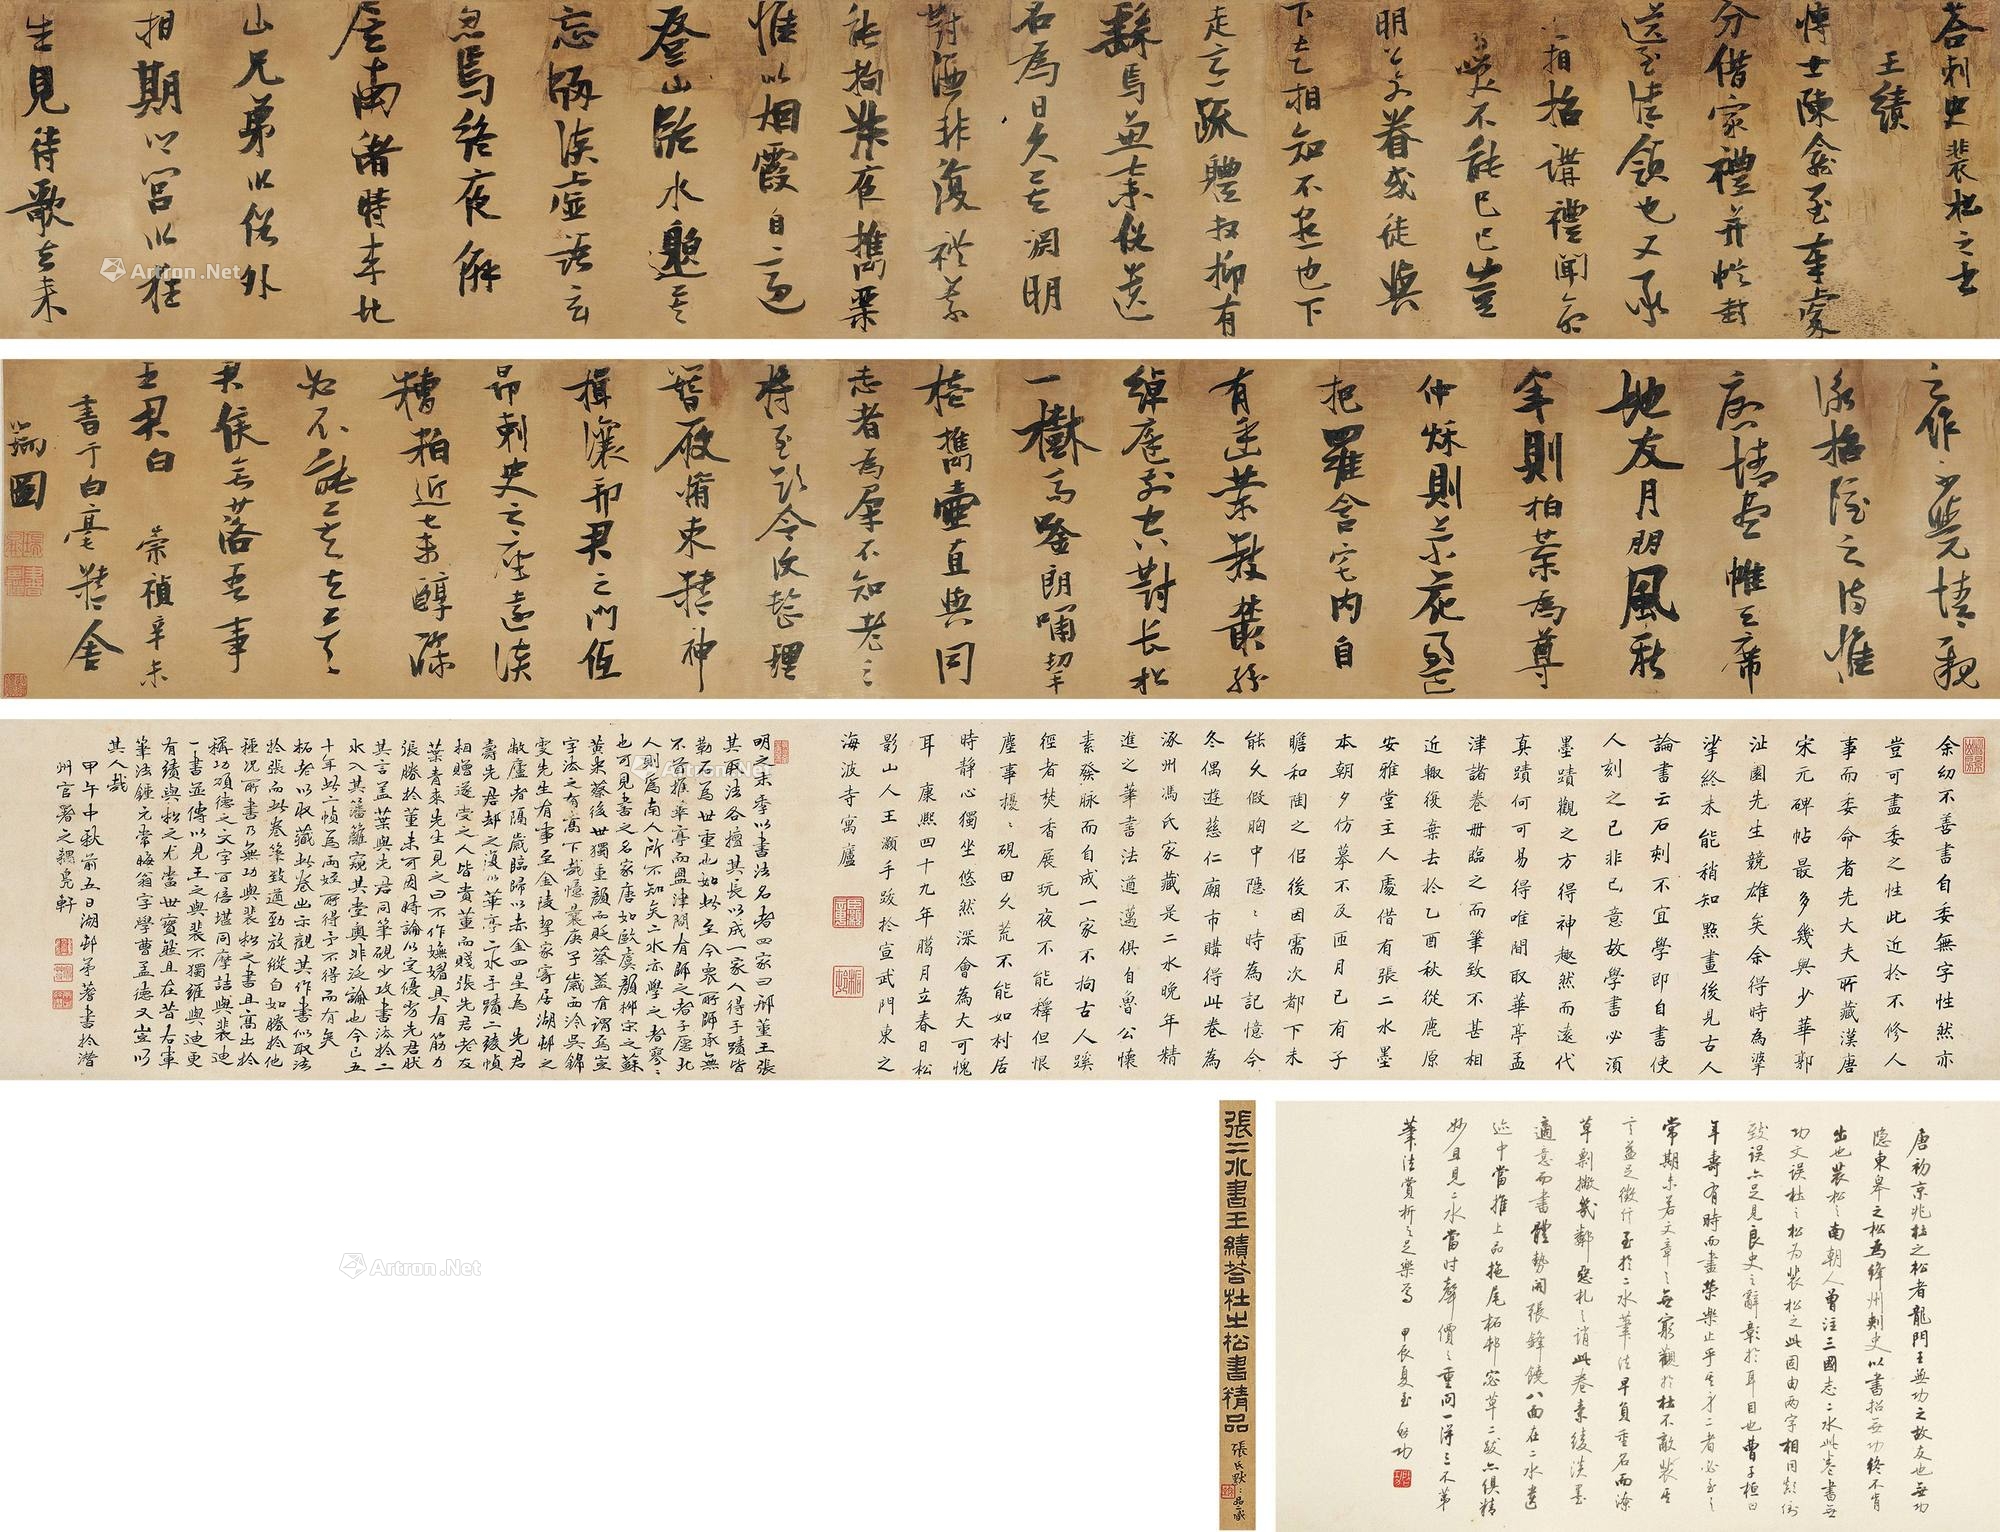 荅刺史裴松之書
王績
博士陳龕至奉處
分借家禮并帙封
送至請領也又承
欲相招講禮聞命
驚笑不能已已豈
明公前眷或徒與
下走相知不熟也下
走意疏體放抑有
繇焉兼棄俗遺
名為日久矣淵明
對酒非復禮義
能拘叔夜攜琴
惟以烟霞自適
登山臨水邈矣
忘歸談虛語玄
忽焉終夜僻
居南渚時來北
山兄弟以俗外
相期鄉閭以狂
生見待歌去來
之作不覺情親
詠招隱之詩惟
憂情盡帷天席
地友月朋風新
年則柏葉為尊
仲秋則菊花盈
把羅含宅內自
有幽蘭數叢孫
綽庭前空對長松
一樹高吟朗嘯挈
榼攜壺直與同
志者為羣不知老之
將至欲令復整理
簪屨脩束精神
揖讓邦君之門低
昂刺史之座遠談
糟粕近棄醇醪
必不能矣去矣
君侯無落吾事
王君白 崇禎辛未
書于白毫精舍
瑞圖
余幼不善書自委無字性然亦
豈可盡委之性此近於不修人
事而委命者先大夫所藏漢唐
宋元碑帖最多幾與少華郭
沚園先生競雄矣余得時為摹
挲終未能稍知點畫後見古人
論書云石刻不宜學即自書使
人刻之已非己意故學書必須
墨蹟觀之方得神趣然而遠代
真蹟何可易得唯間取華亭孟
津諸卷冊臨之而筆致不甚相
近輙復棄去於乙酉秋從鹿原
安雅堂主人處借有張二水墨
本朝夕仿摹不及匝月已有子
瞻和陶之侣後因需次都下未
能久假胸中隱〻時為記憶今
冬偶遊慈仁廟市購得此卷為
涿州馮氏家藏是二水晚年精
進之筆書法遒邁俱自魯公懷
素發脉而自成一家不拘古人蹊
徑者焚香展玩夜不能釋但恨
塵事擾〻硯田久荒不能如村居
時靜心獨坐悠然深會為大可愧
耳 康熙四十九年臘月立春日松
影山人王灝手跋於宣武門東之
海波寺寓廬
明之末季以書法名者四家曰邢董王張
其取法各擅其長以成一家人得手蹟皆
勒石為世重也如此至今衆所師承無
不首推華亭而盟津間有師之者子愿北
人則為南人所不知矣二水亦學之者寥〻
也可見書之名家唐如歐虞顏柳宋之蘇
黄米蔡後世獨重顏而貶蔡蓋有謂為豈
字法之有高下哉憶曩庚子歲西泠吳錦
雯先生有事至金陵挈家寄居湖邨之
敝廬者隔歲臨歸以赤金四星為 先君
壽先君却之復以華亭二水手蹟二綾幀
相贈遂受之人皆貴董而賤張先君老友
葉青來先生見之曰不作嫵媚具有筋力
張勝於董未可因時論以定優劣先君狀
其言蓋葉與先君同筆硯少攻書法於二
水入其籓籬窺其堂奧非泛論也今已五
十年此二幀為兩姪所得予不得而有矣
柘老以收藏此卷出示觀其作書似取法
於張而此卷筆致遒勁放縱自如勝於他
種況所書乃無功與裴松之書且高出於
稱功頌德之文字百倍堪同摩詰與裴迪
一書並傳以見王之與裴不獨維與迪更
有績與松之尤當世寶然且在昔右軍
筆法鍾元常晦翁字學曹孟德又豈以
其人哉
甲午中秋前五日湖邨弟著書於潛
州官署之耦鳧軒
張二水書王績荅杜之松書精品
唐初京兆杜之松者龍門王無功之故友也無功
隱東皋之松為絳州刺史以書招無功終不肯
出也裴松之南朝人曾注三國志二水此卷書無
功文誤杜之松为裴松之此固由兩字相同顛倒
致误亦足見良史之辭彰於耳目也曹子桓曰
年壽有時而盡榮樂止乎其身二者必至之
常期未若文章之無窮觀於杜不敵裴其
言益足徵信至於二水筆法早負重名而潦
草剽撇幾鄰惡札之誚此卷素綾淡墨
適意而書體勢開張鋒鐃八面在二水遺
迹中當推上品拖尾柘邨宓草二跋亦俱精
妙且見二水當时聲價之重同一得之不第
筆法賞析之足樂焉 甲辰夏至 啟功
Artron.Net
Artron.Net
Artron.Net
Artron.Net